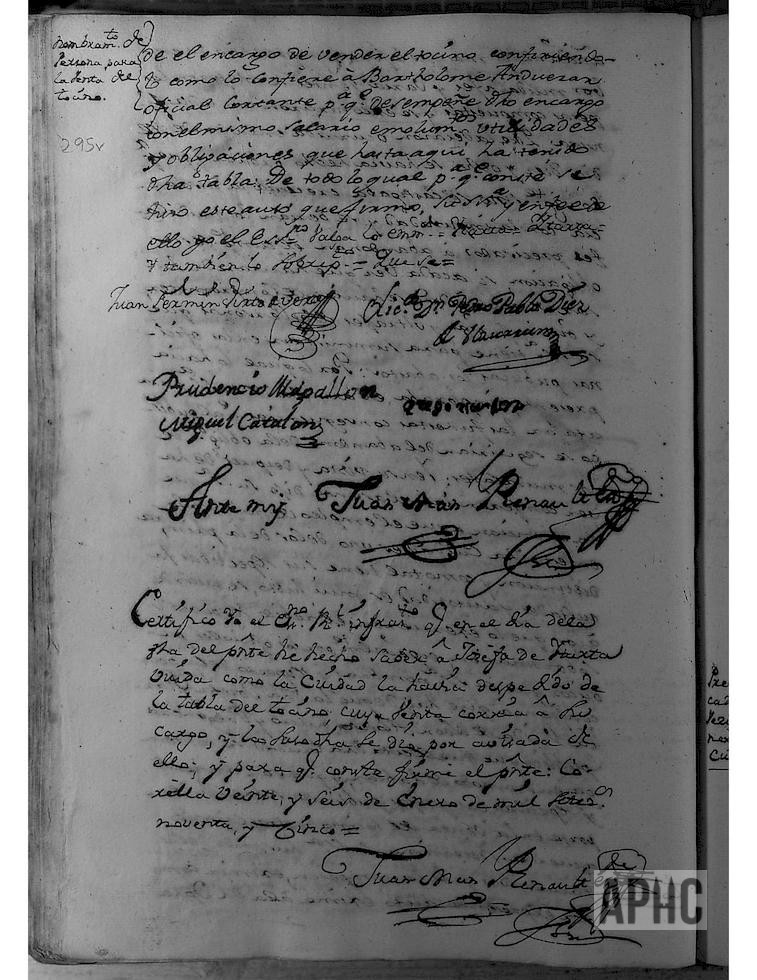 nombram.to de
Persona para
la Venta del
tocino.
295v
de el encargo de vender el tocino confiriendo-
lo como lo confiere â Bartholome Anduezar
oficial Cortante p.a q.e desempeñe dho encargo
con el mismo Salario emolum.tos utilidades
y obligaciones que hasta aqui ha tenido
dha tabla. De todo lo qual p.a q.e conste se
hizo este auto que firmó, su S.ria y en fee de
ello yo el Ess.no Valga lo enm.do
y tambien lo Sobrep.to = que se =
Juan Fermin Sixto de Vera
Lic.do D.n Pedro Pablo Diez
de Ulzurrun
Prudencio Magallon
Miguel Catalan
Ante my Juan Man Renault
Certifico Yo el Es.no R.l infras.to q.e en el dia dela
fha del p̂nte he hecho Saber â Josefa de
Viuda como la Ciudad la havia despedido de
la tabla del tocino, cuya Venta corria â su
cargo, y la susodha se dio por avisada de
ello; y para q.e conste firmé el p̂nte: Co-
rella Veinte, y seis de Enero de mil setez.os
noventa, y Cinco =
Juan Man Renault
APHC